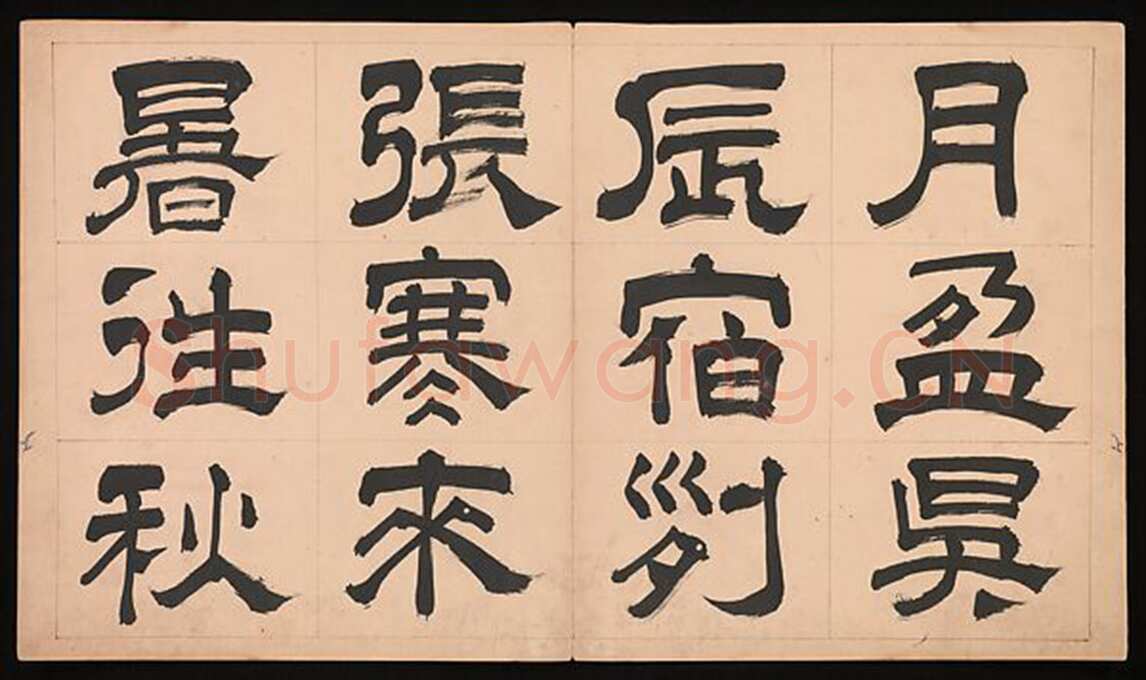 月盈吳
辰宿列
張寒來
暑往秋
Shufawang.CN